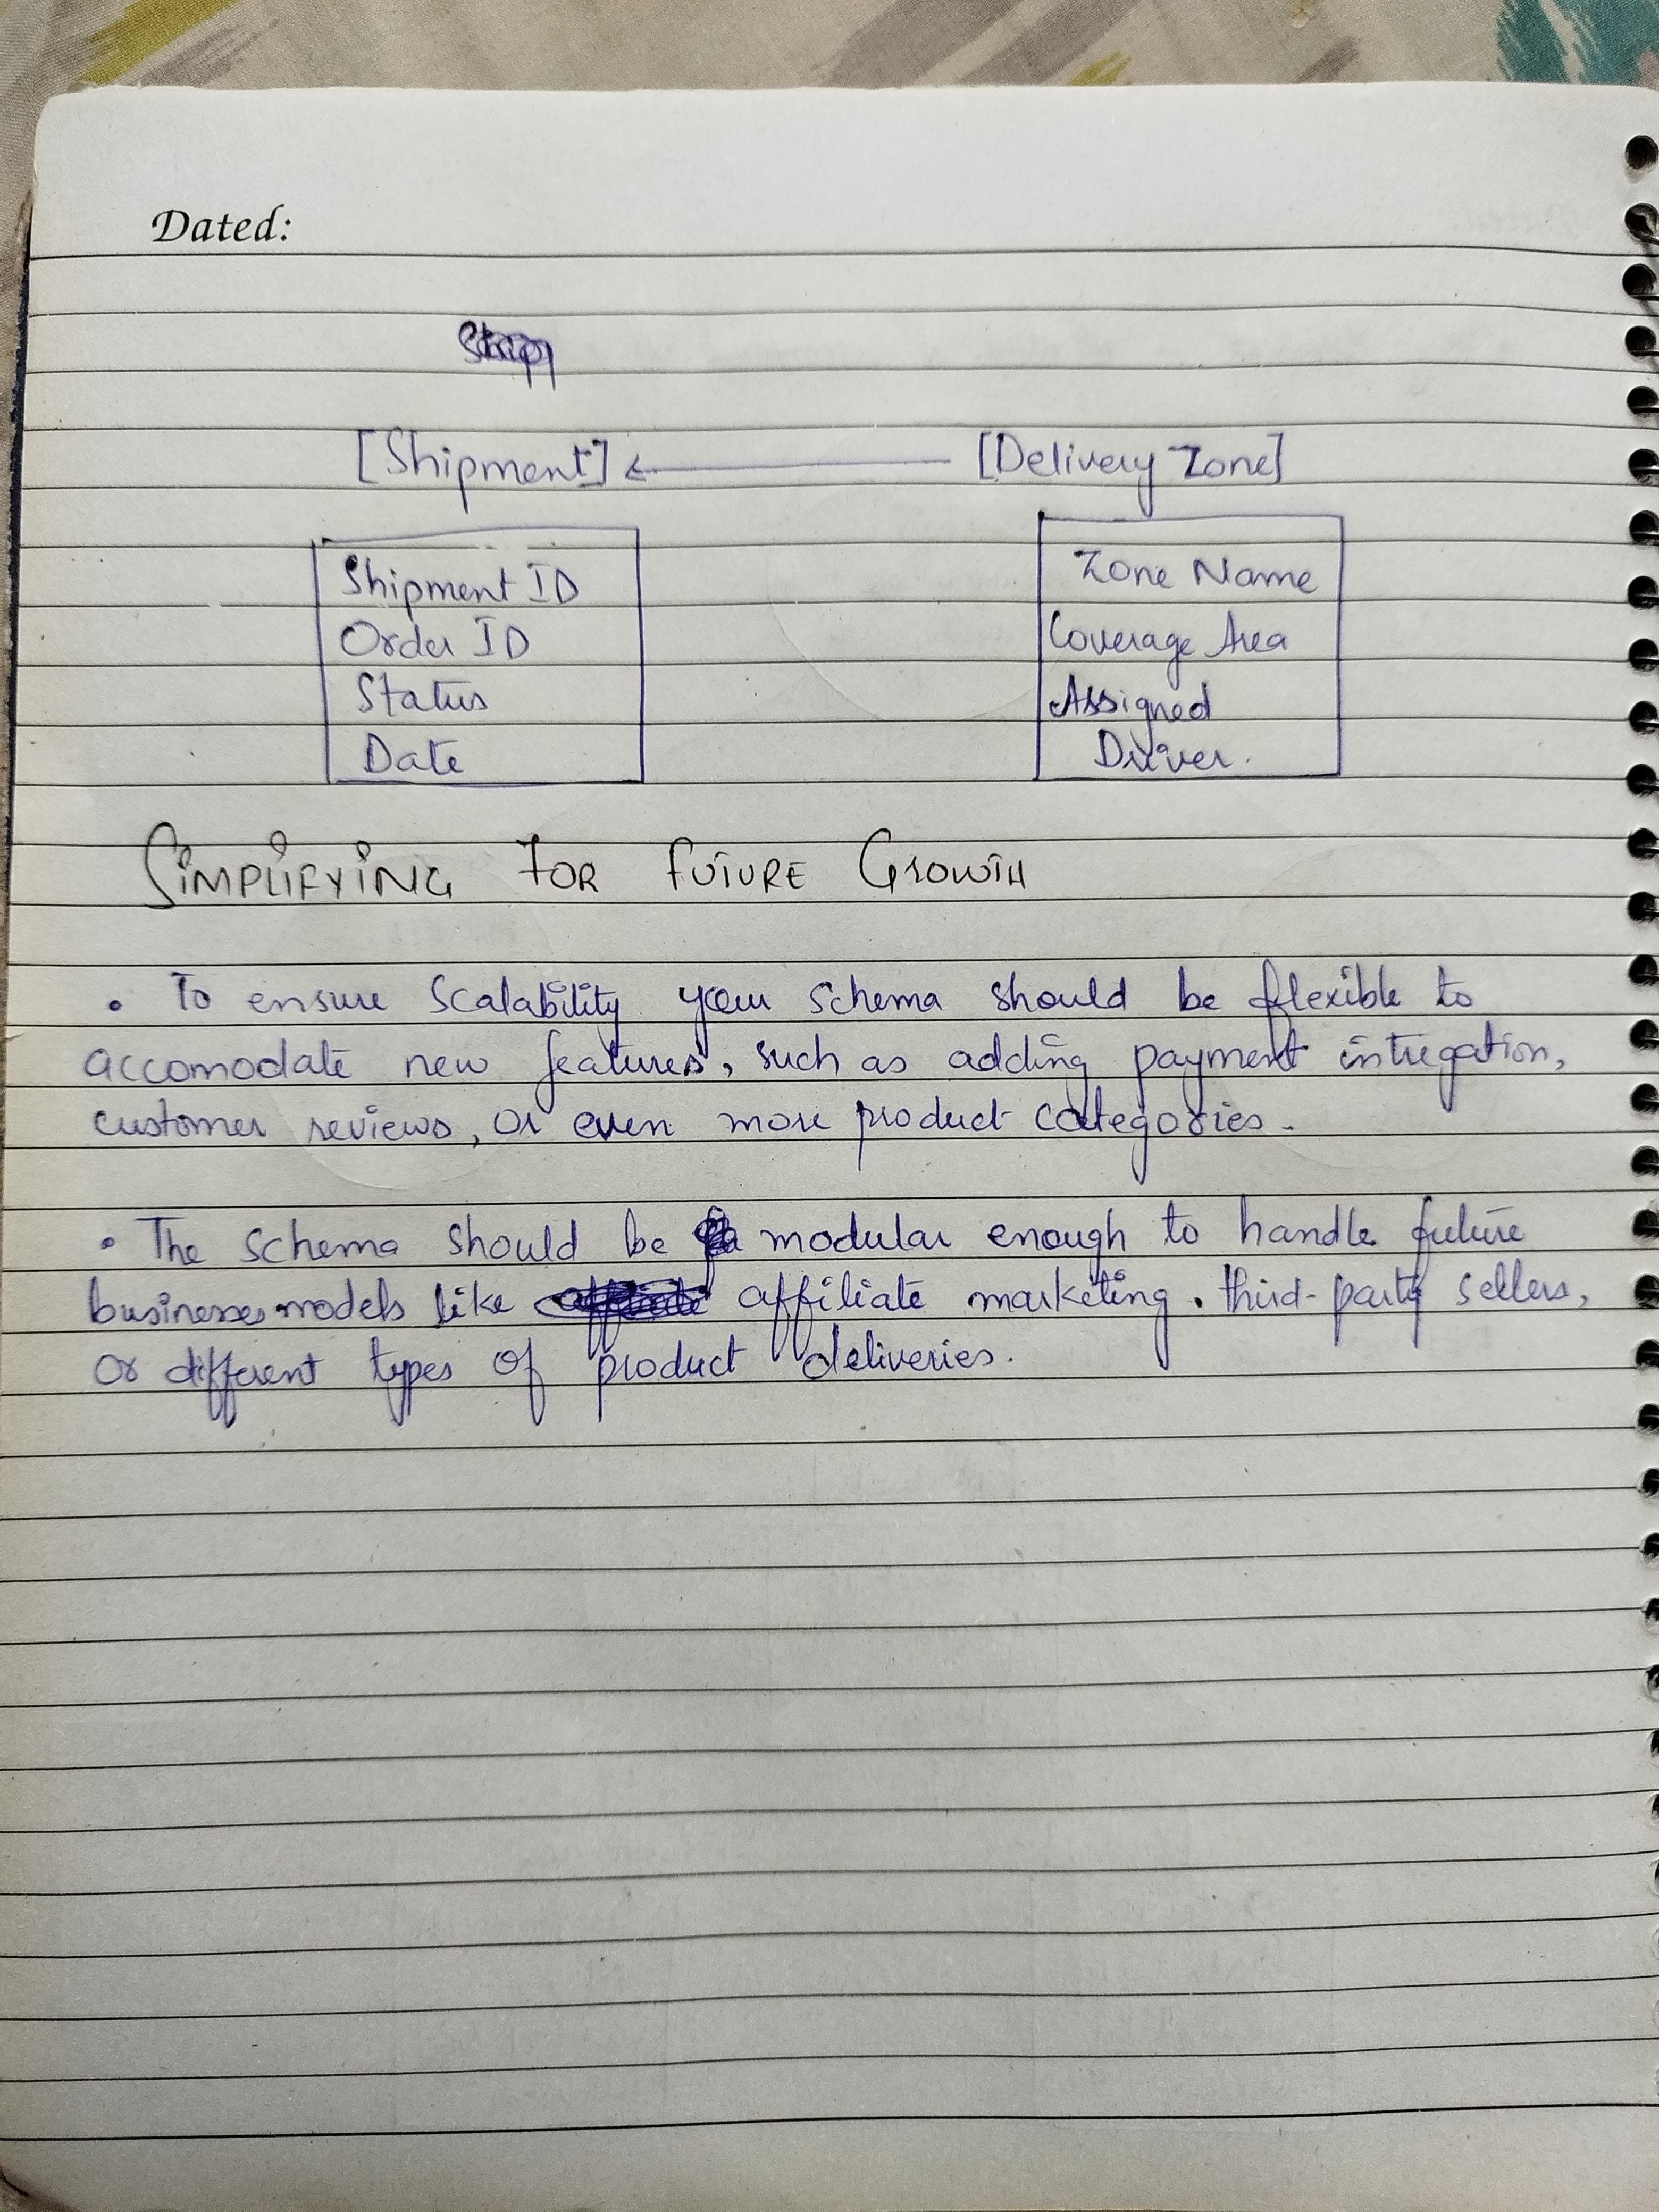 Dated:
[Shipment] ← [Delivery Zone]
Shipment ID
Order ID
Status
Date
Zone Name
Coverage Area
Assigned
Driver.
SIMPLIFYING FOR FUTURE GROWTH
• To ensure scalability your schema should be flexible to
accomodate new features, such as adding payment intregation,
customer reviews, or even more product categories.
• The schema should be modular enough to handle future
businesses models like affiliate marketing. third-party sellers,
or different types of product deliveries.